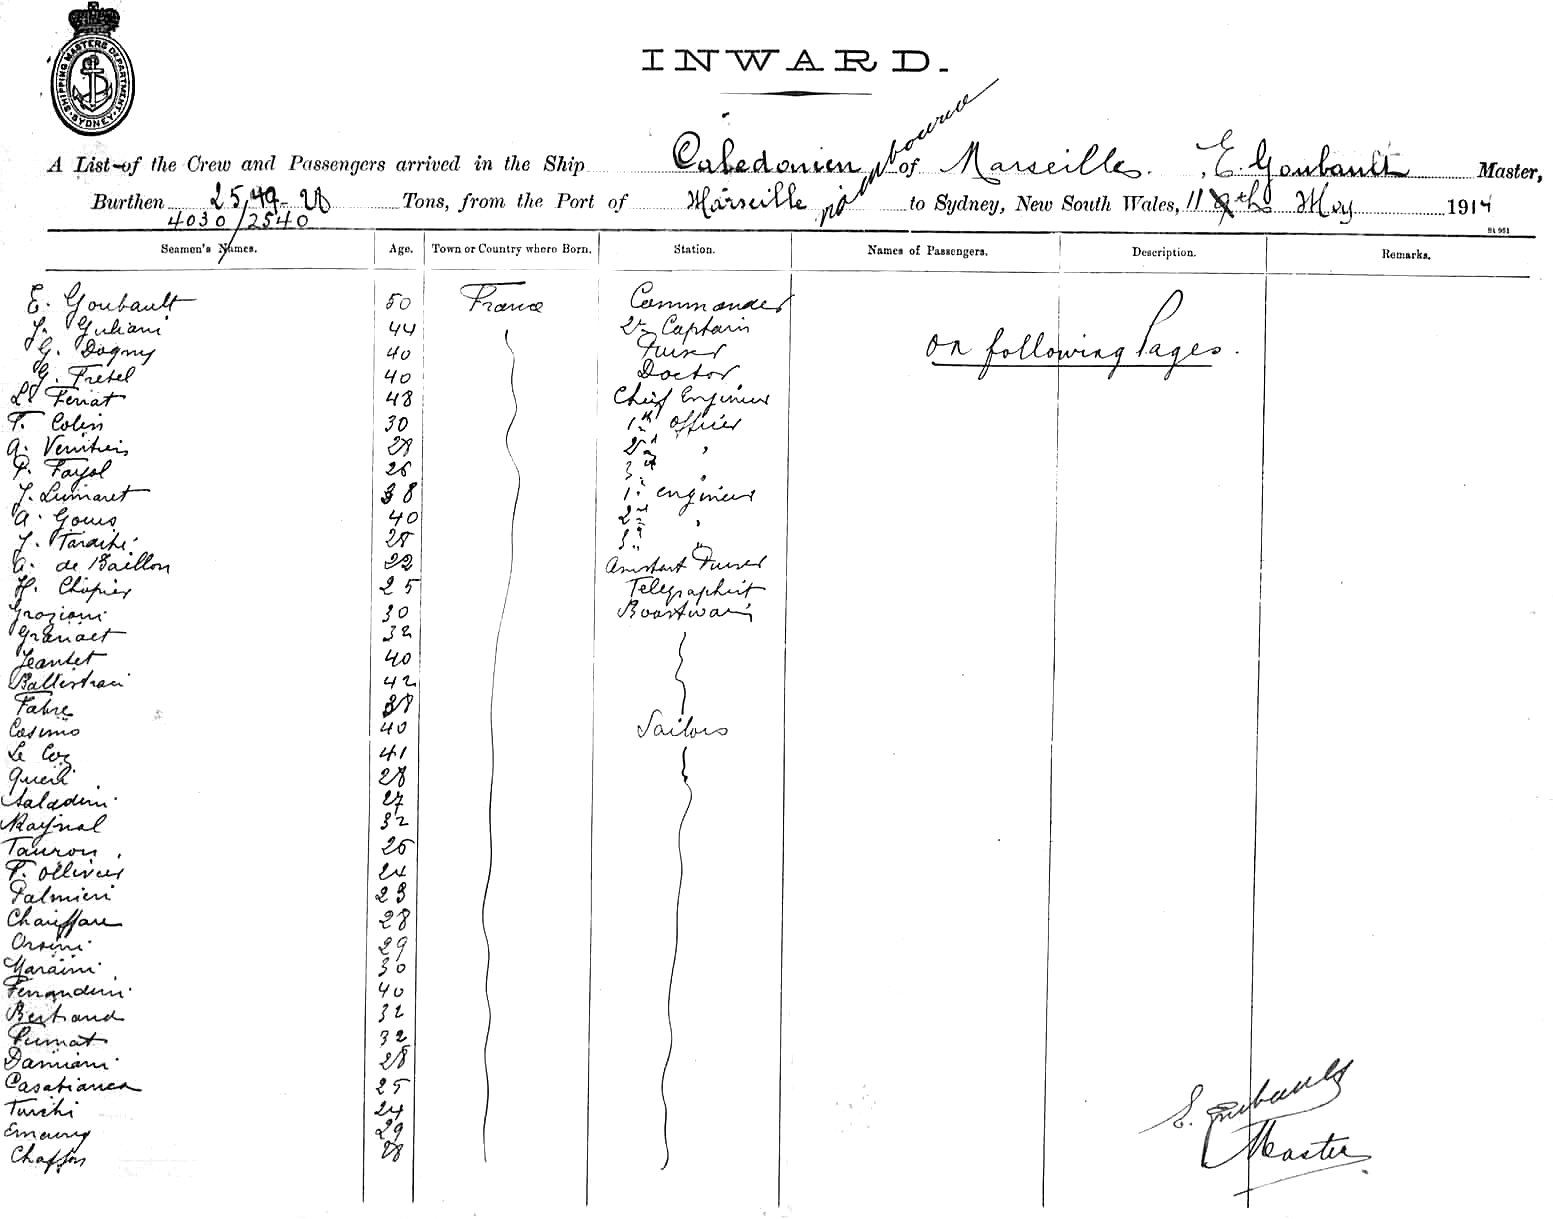 SHIPPING MASTERS DEPARTMENT SYDNEY
INWARD.
A List of the Crew and Passengers arrived in the Ship Caledonien of Marseille. E. Goubault Master,
Burthen 2549 Tons, from the Port of Marseille to Sydney, New South Wales, 11 th May 1914
4030/2540
Seamen's Names. Age. Town or Country where Born. Station. Names of Passengers. Description. Remarks.
E. Goubault 50 France Commander
J. Guliani 44 Captain
G. Dogny 40 Purser
G. Fretel 40 Doctor
48 Chief Engineer
F. Colin 30 1st officer
A. 28 2nd "
P. Fayol 26 3rd "
J. Lumaret 38 1st engineer
A. Gouis 40 2nd "
J. 28 3rd "
A. de Baillon 22 Assistant Purser
H. Chapier 25 Telegraphist
Graziani 30 Boastwain
32
Jeantet 40
Battistraci 42
Fabre 38
Cosimo 40 Sailors
Le Coz 41
28
Saladini 27
Raynal 32
Tauron 26
F. Ollivier 24
Palmieri 23
Chauffare 28
Orsini 29
Maraini 30
Ferrandini 40
Bertrand 32
32
Damiani 28
Casabianca 25
Turchi 24
29
28
on following Pages.
E. Goubault
Master